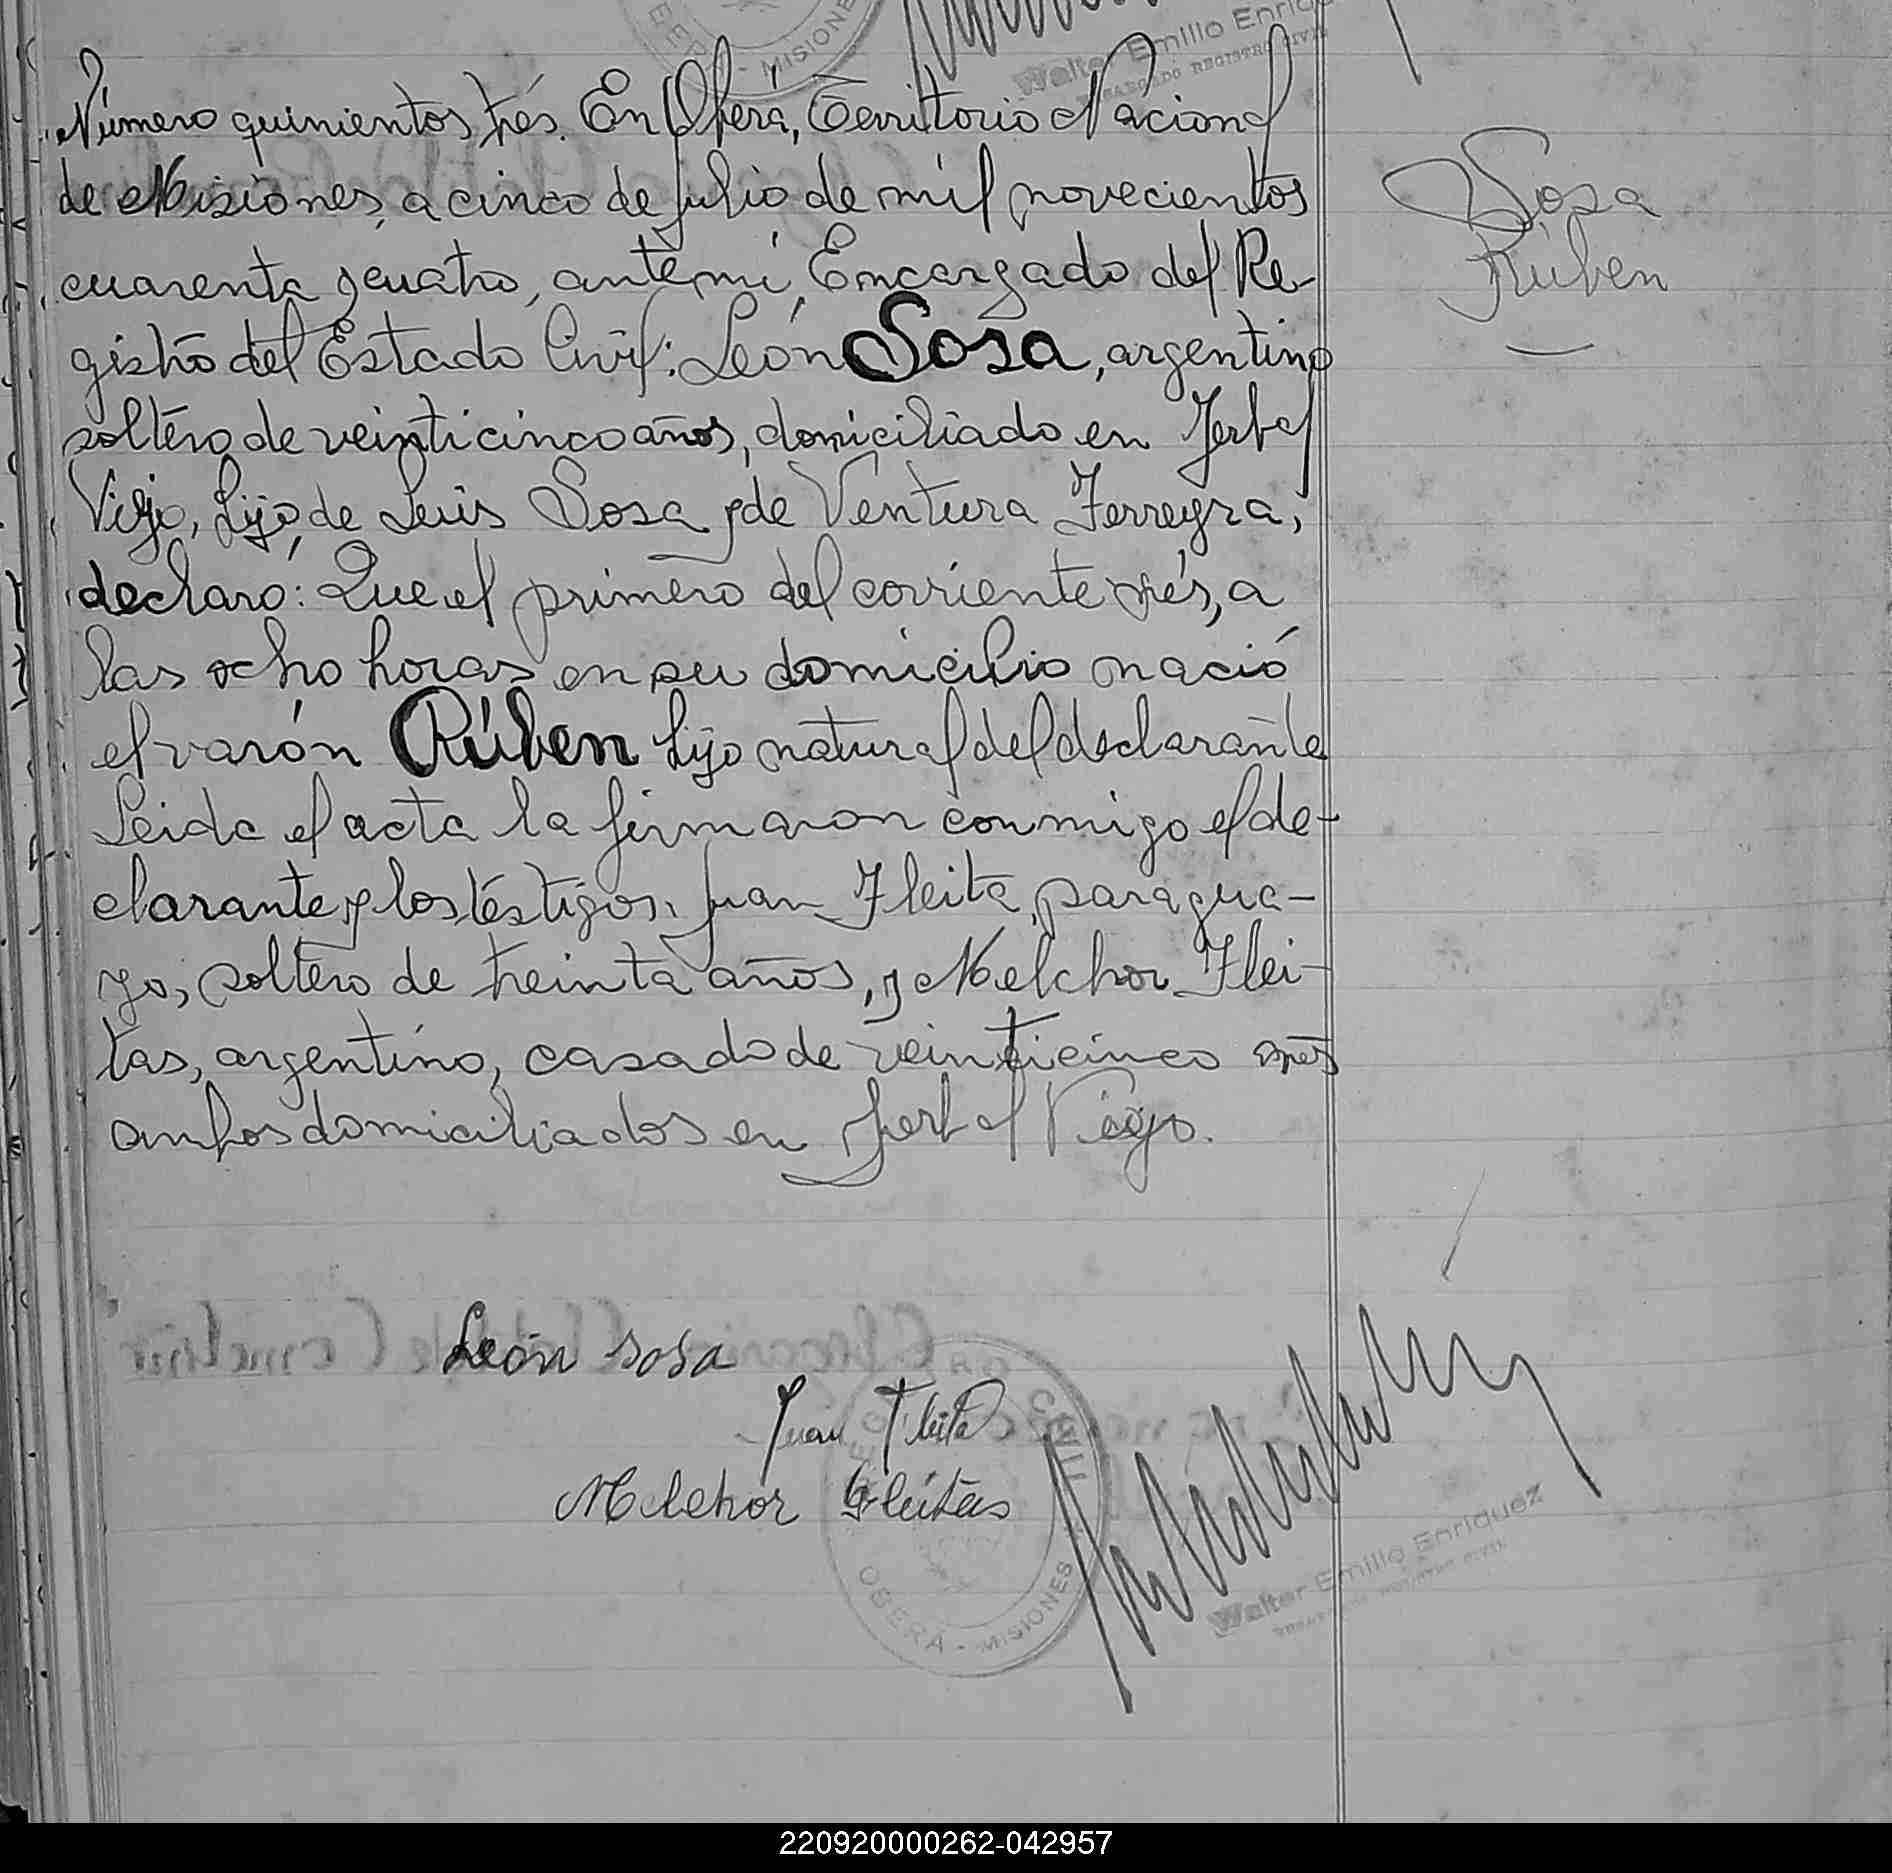 OBERÁ - MISIONES
Walter Emilio Enriquez
ENCARGADO REGISTRO CIVIL
Número quinientos trés. En Oberá, Territorio Nacional
de Misiones, a cinco de julio de mil novecientos
cuarenta y cuatro, ante mí, Encargado del Re-
gistro del Estado Civil: León Sosa, argentino
soltero de veinticinco años, domiciliado en Yerbal
Viejo, hijo de Luis Sosa y de Ventura Ferreyra,
declaró: Que el primero del corriente més, a
las ocho horas en su domicilio nació
el varón Rúben hijo natural del declarante
Leida el acta la firmaron conmigo el de-
clarante y los téstigos: Juan Fleita, paragua-
yo, soltero de treinta años, y Melchor Flei-
tas, argentino, casado de veinticinco años
ambos domiciliados en Yerbal Viejo.
Sosa
Rúben
León sosa
Juan Fleita
Melchor Fleitas
CIVIL
OBERÁ - MISIONES
Walter Emilio Enriquez
ENCARGADO REGISTRO CIVIL
220920000262-042957